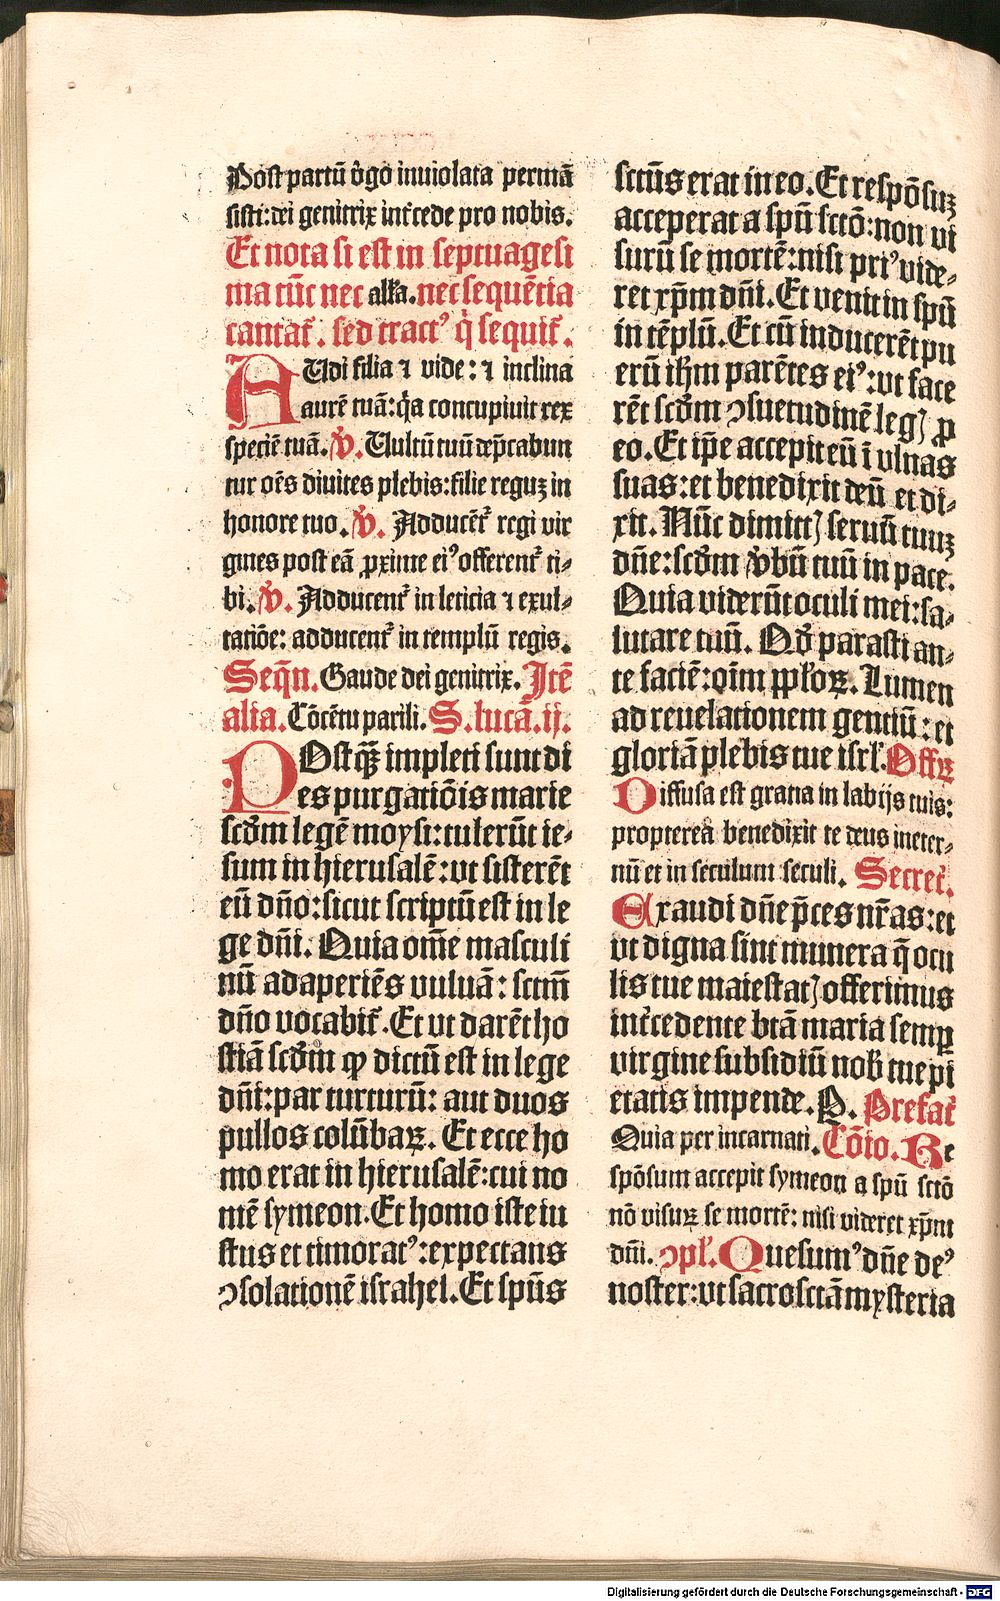 Post partū v̓go inuiolata permā
sisti: dei genitrix int̓cede pro nobis.
Et nota si est in septuagesi
ma tūc nec all̓a. nec sequētia
cantat᷑. sed tractꝰ q̇ sequit᷑.
AUdi filia ⁊ vide: ⁊ inclina
aurē tuā: q̇a concupiuit rex
speciē tuā. v̓. Uultū tuū dep̄cabun
tur oēs diuites plebis: filie reguꝫ in
honore tuo. v̓. Adducēt᷑ regi vir
gines post eā ꝓxime eiꝰ offerent᷑ ti⸗
bi. v̓. Adducent᷑ in leticia ⁊ exul⸗
tatiōe: adducent᷑ in templū regis.
Seq̄n. Gaude dei genitrix. Itē
alia. Cōcētu parili. S. lucā. ij.
POstqꝫ̄ impleti sunt di
es purgatiōis marie
scd̓m legē moysi: tulerūt ie⸗
sum in hierusalē: vt sisterēt
eū dn̄o: sicut scriptū est in le
ge dn̄i. Quia om̄e masculi
nū adaperiēs vuluā: sctm̄
dn̄o vocabit᷑. Et vt darēt ho
stiā scd̓m ꝙ dictū est in lege
dn̄i: par turturū: aut duos
pullos colūbaꝝ. Et ecce ho
mo erat in hierusalē: cui no
mē symeon. Et homo iste iu
stus et timoratꝰ: expectans
ꝯsolationē israhel. Et spūs
sctūs erat in eo. Et respōsuꝫ
acceperat a spū sctō: non vi
surū se mortē: nisi priꝰ vide⸗
ret xp̄m dn̄i. Et venit in spū
in tēplū. Et cū inducerēt pu
erū ih̄m parētes eiꝰ: vt face
rēt scd̓m ꝯsuetudinē legꝭ ꝓ
eo. Et ip̄e accepit eū ī vlnas
suas: et benedixit deū et di⸗
xit. Nūc dimittꝭ seruū tuuꝫ
dn̄e: scd̓m v̓bū tuū in pace.
Quia viderūt oculi mei: sa⸗
lutare tuū. Qd̓ parasti an⸗
te faciē: oīm ppl̓oꝝ. Lumen
ad reuelationem gentiū: et
gloriā plebis tue isrl̓. Offꝝ
Diffusa est gratia in labijs tuis:
propterea benedixit te deus in eter⸗
nū et in seculum seculi. Secret᷑.
Exaudi dn̄e p̄ces nr̄as: et
vt digna sint munera q̄ ocu
lis tue maiestatꝭ offerimus
int̓cedente btā maria semꝑ
virgine subsidiū nob̓ tue pi
etatis impende. P. Prefat᷑
Quia per incarnati. Cōio. Re
spōsum accepit symeon a spū sctō
nō visuꝝ se mortē: nisi videret xp̄m
dn̄i. ꝯpl̓. Quesumꝰ dn̄e deꝰ
noster: vt sacrosctā mysteria
Digitalisierung gefördert durch die Deutsche Forschungsgemeinschaft - DFG